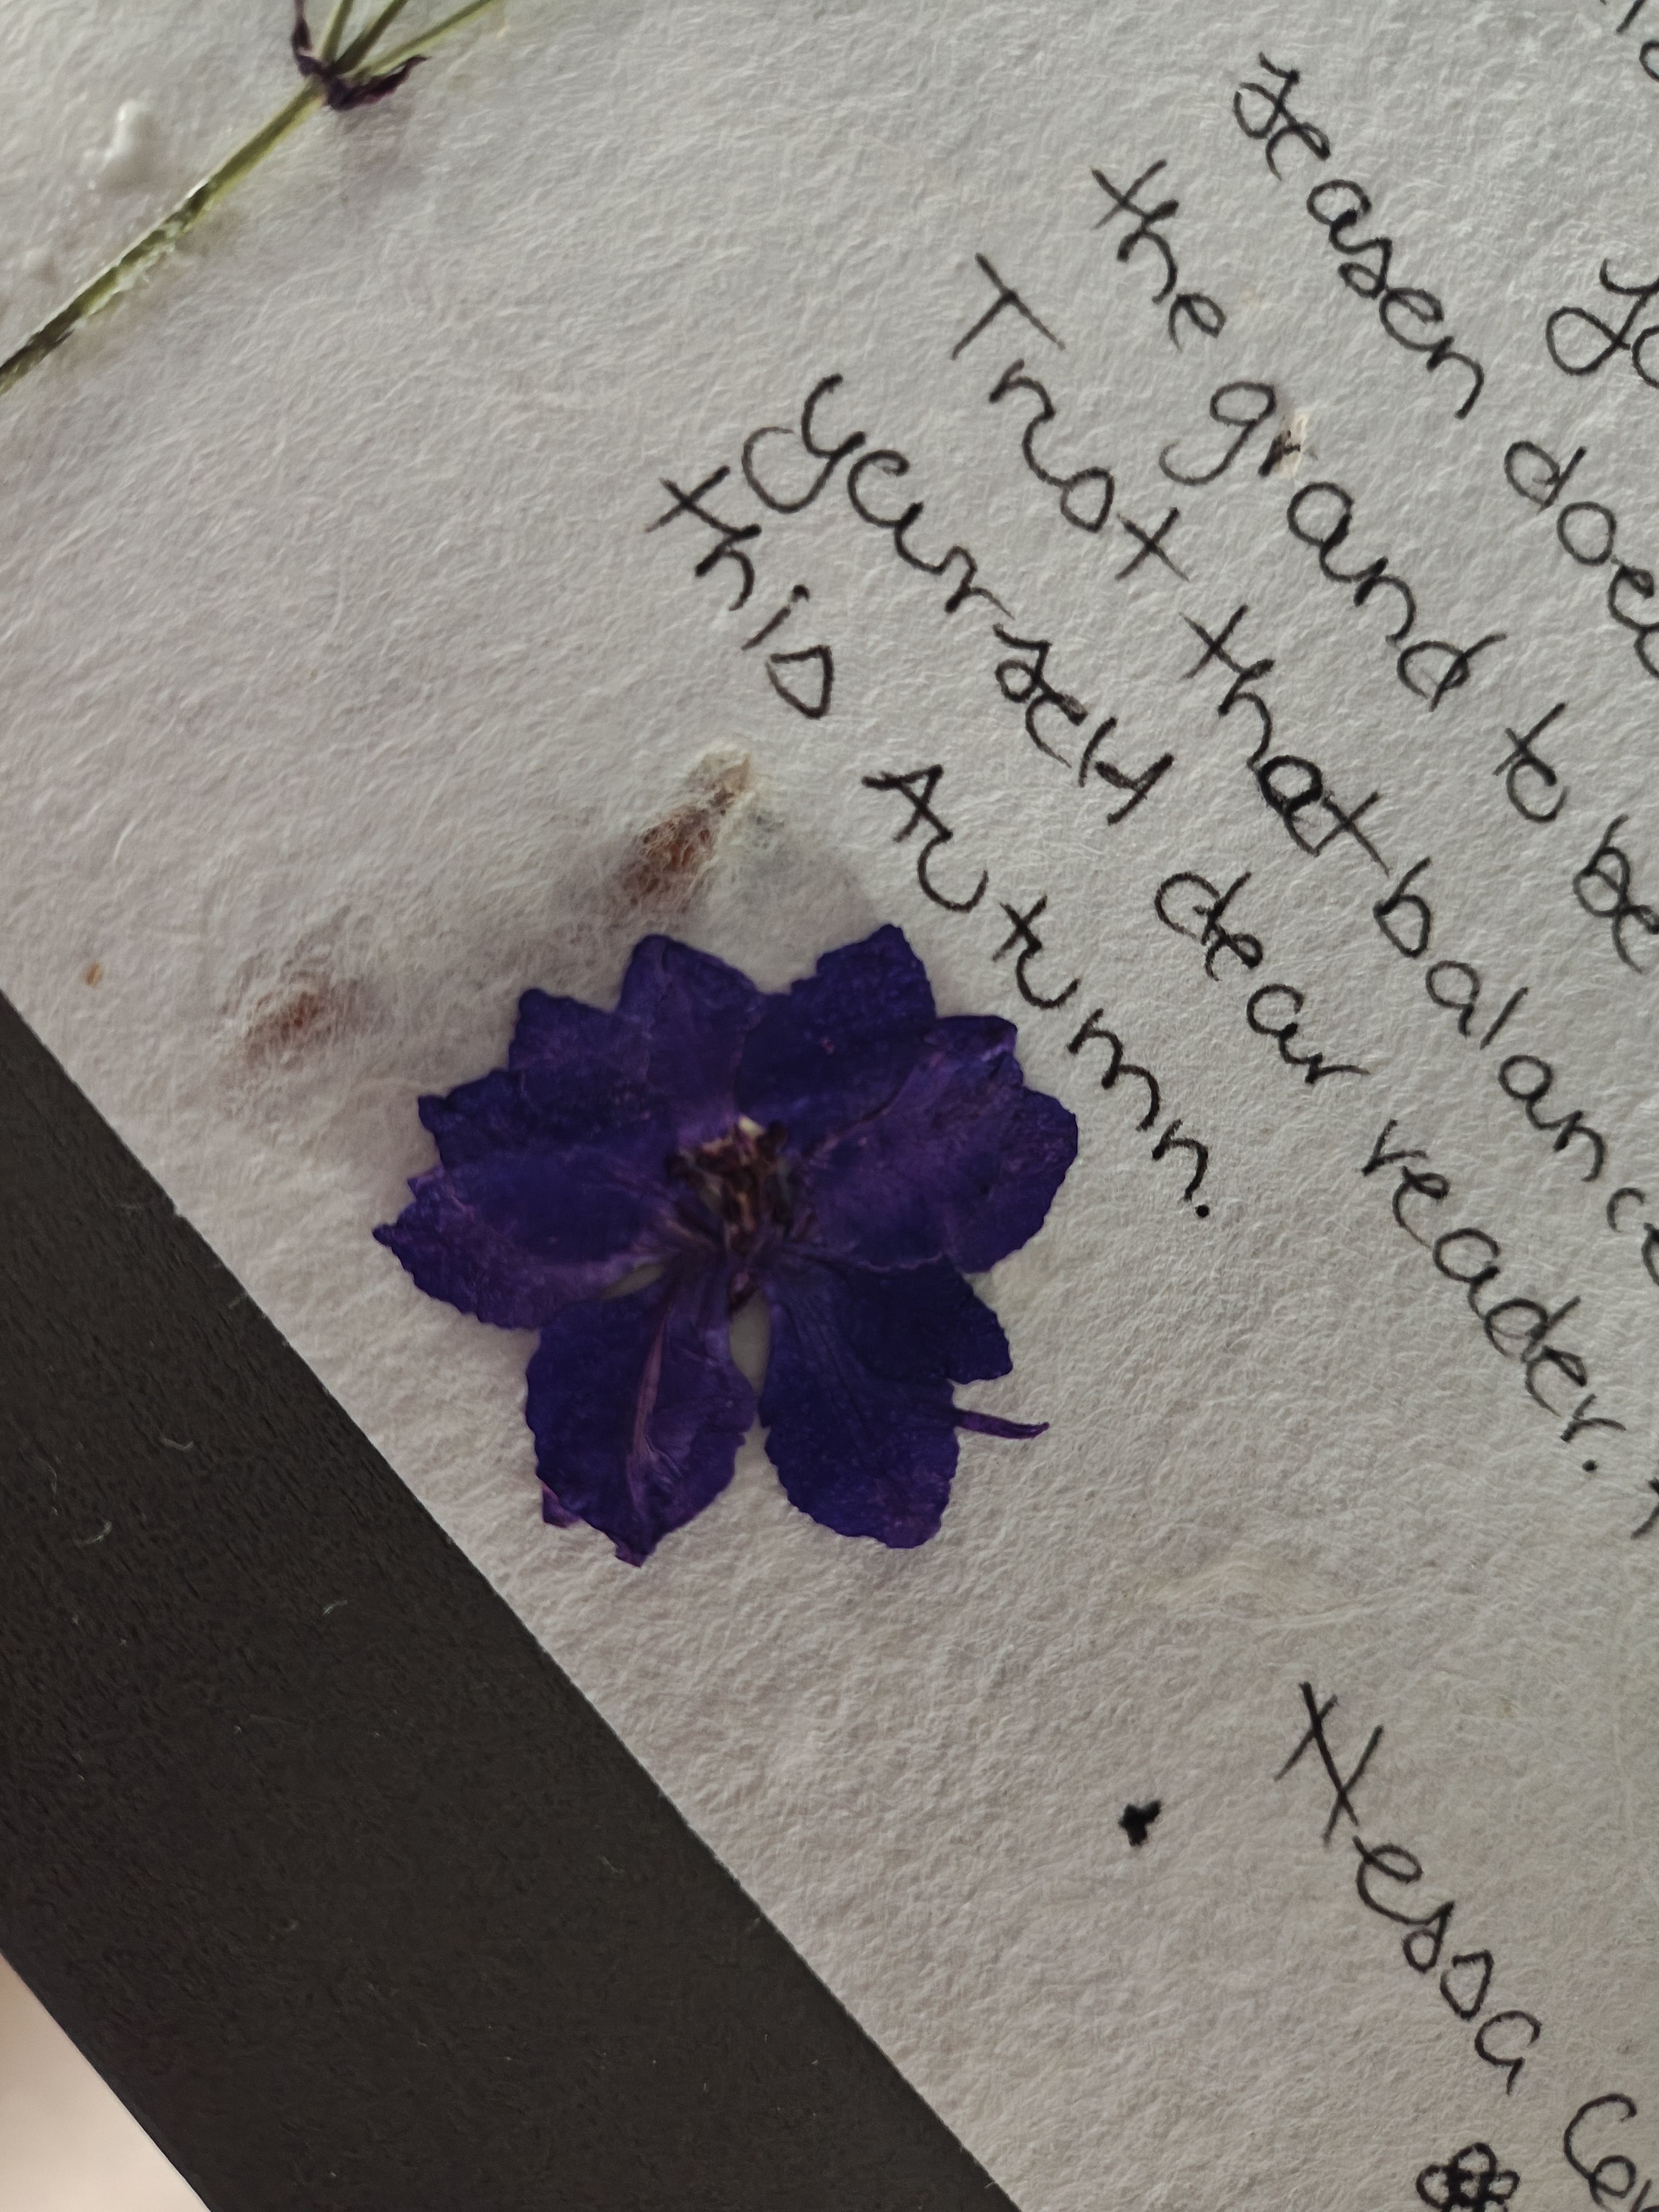 season
the grand to be
Trust that balance
yourself dear reader.
this Autumn.
Nessa